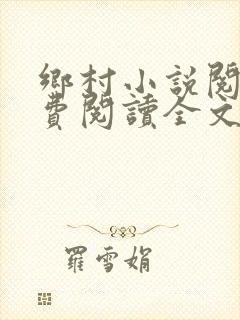 鄉村小說閱
費閱讀全文
羅雪娟